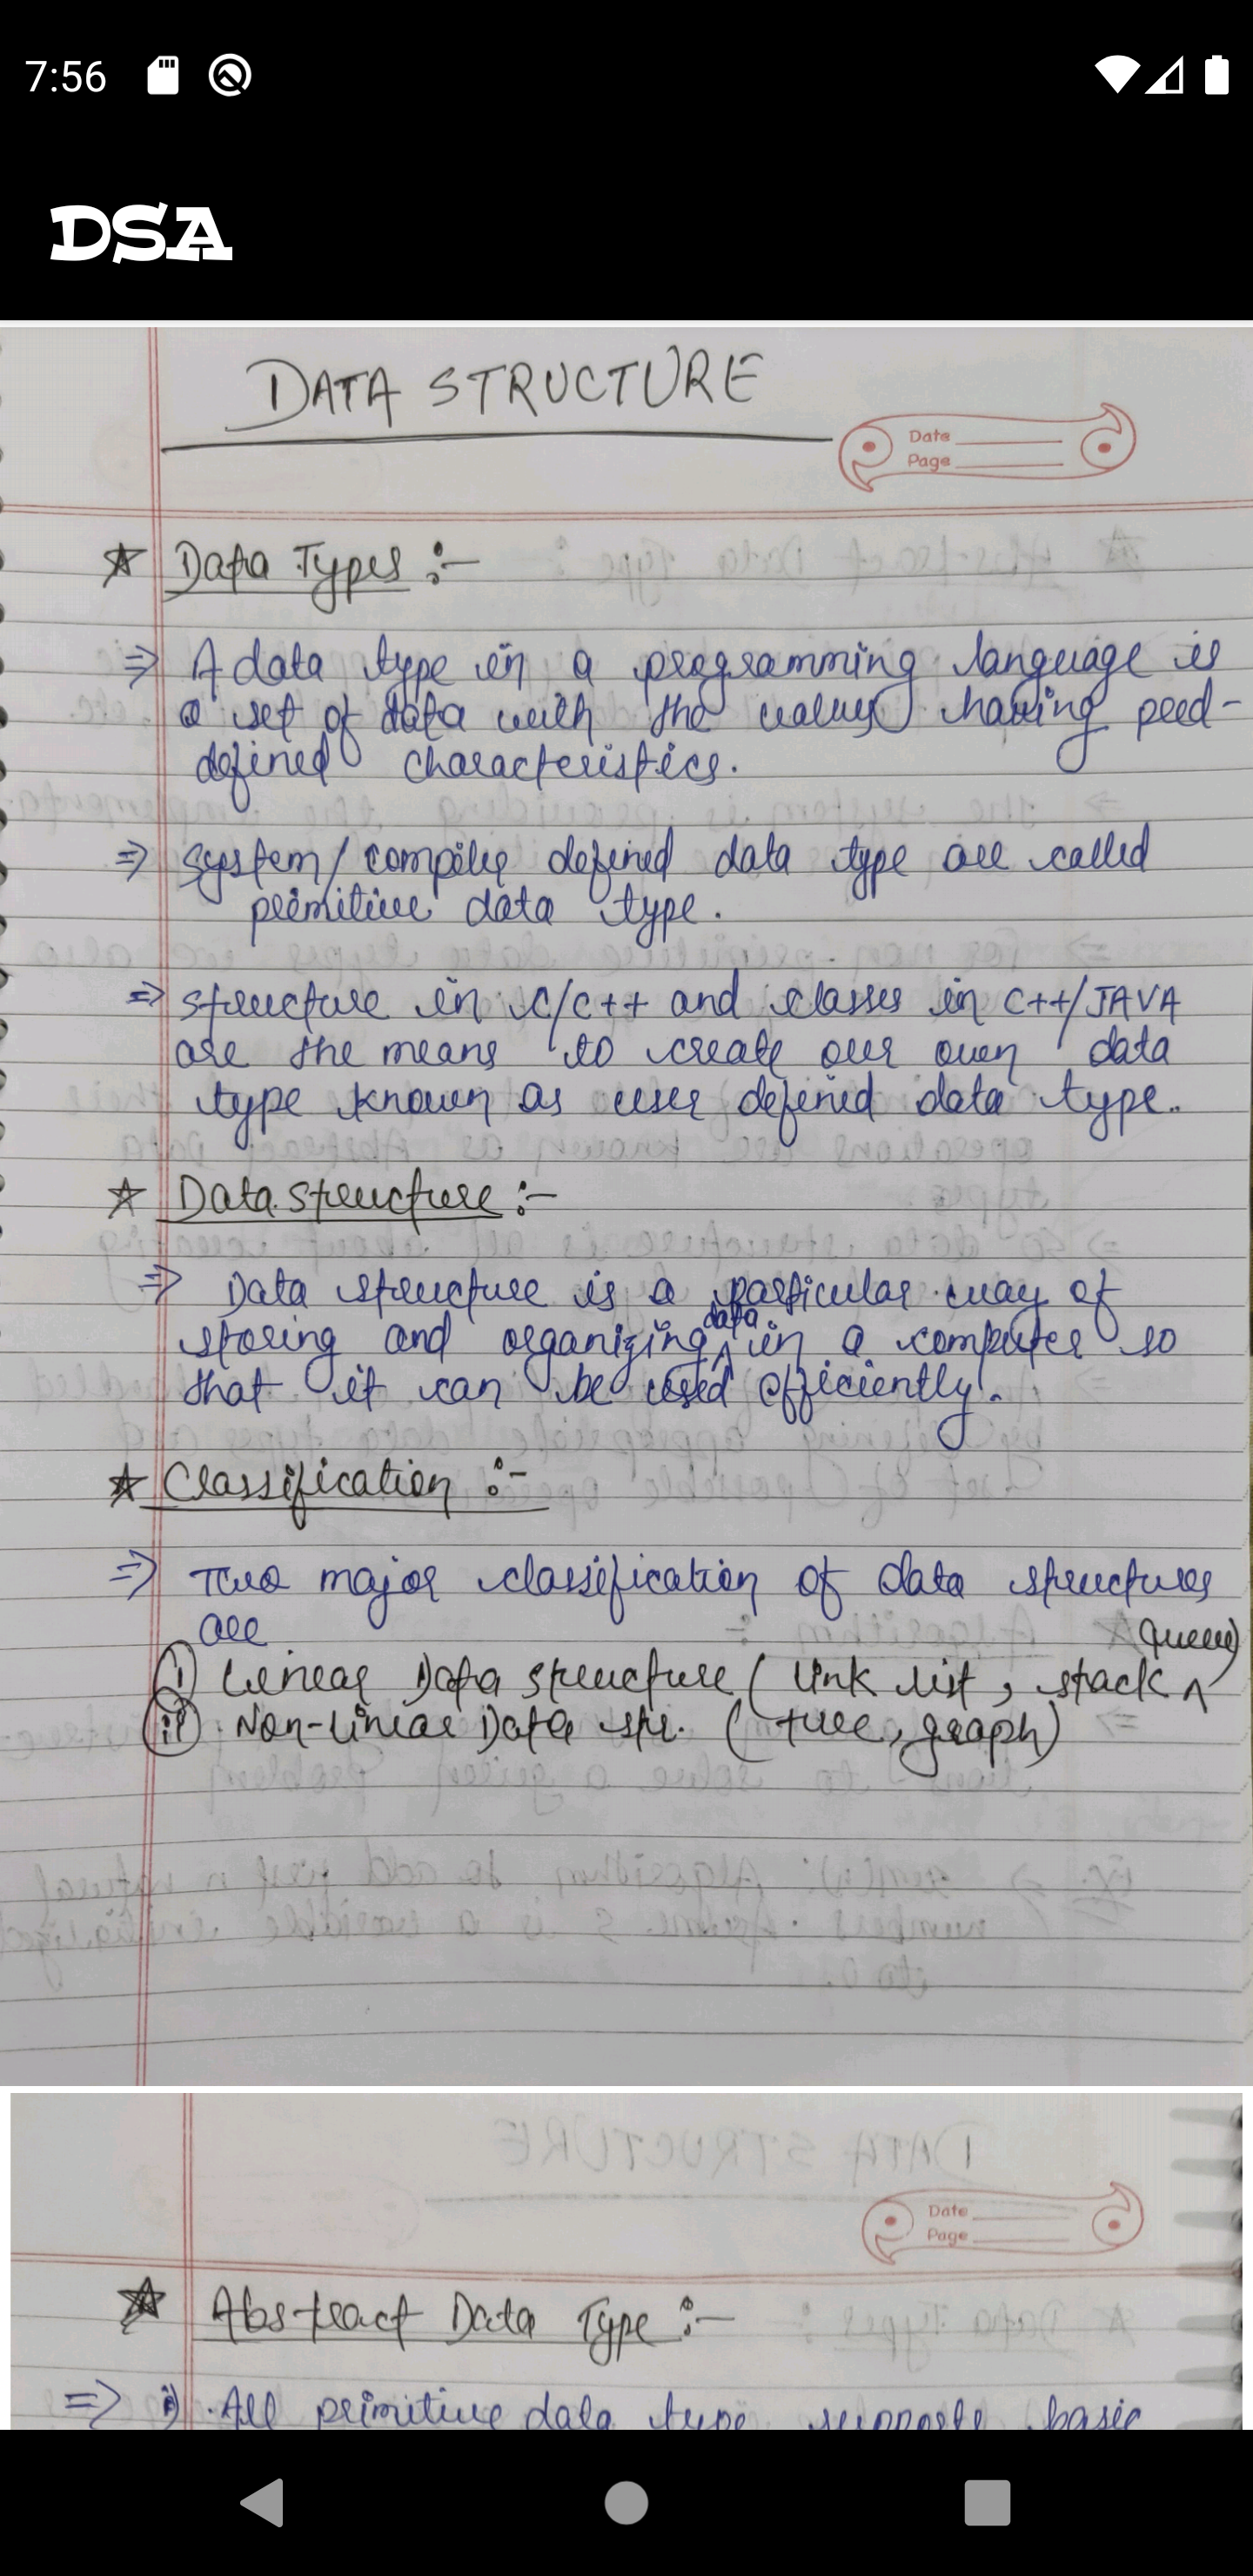 7:56
DSA
DATA STRUCTURE
Date
Page
☆ Data Types :-
⇒ A data type in a programming language is
a set of data with the values having pred-
defined characteristics.
⇒ system/compiler defined data type are called
primitive data type.
⇒ structure in C/C++ and classes in C++/JAVA
are the means to create our own data
type known as user defined data type.
☆ Data structure :-
⇒ Data structure is a particular way of
storing and organizing data in a computer so
that it can be used efficiently.
☆ Classification :-
⇒ Two major classification of data structures
are
i) Linear Data structure (link list, stack, queue)
ii) Non-linear Data str. (tree, graph)
Date
Page
☆ Abstract Data Type :-
⇒ i) All primitive data type supports basic